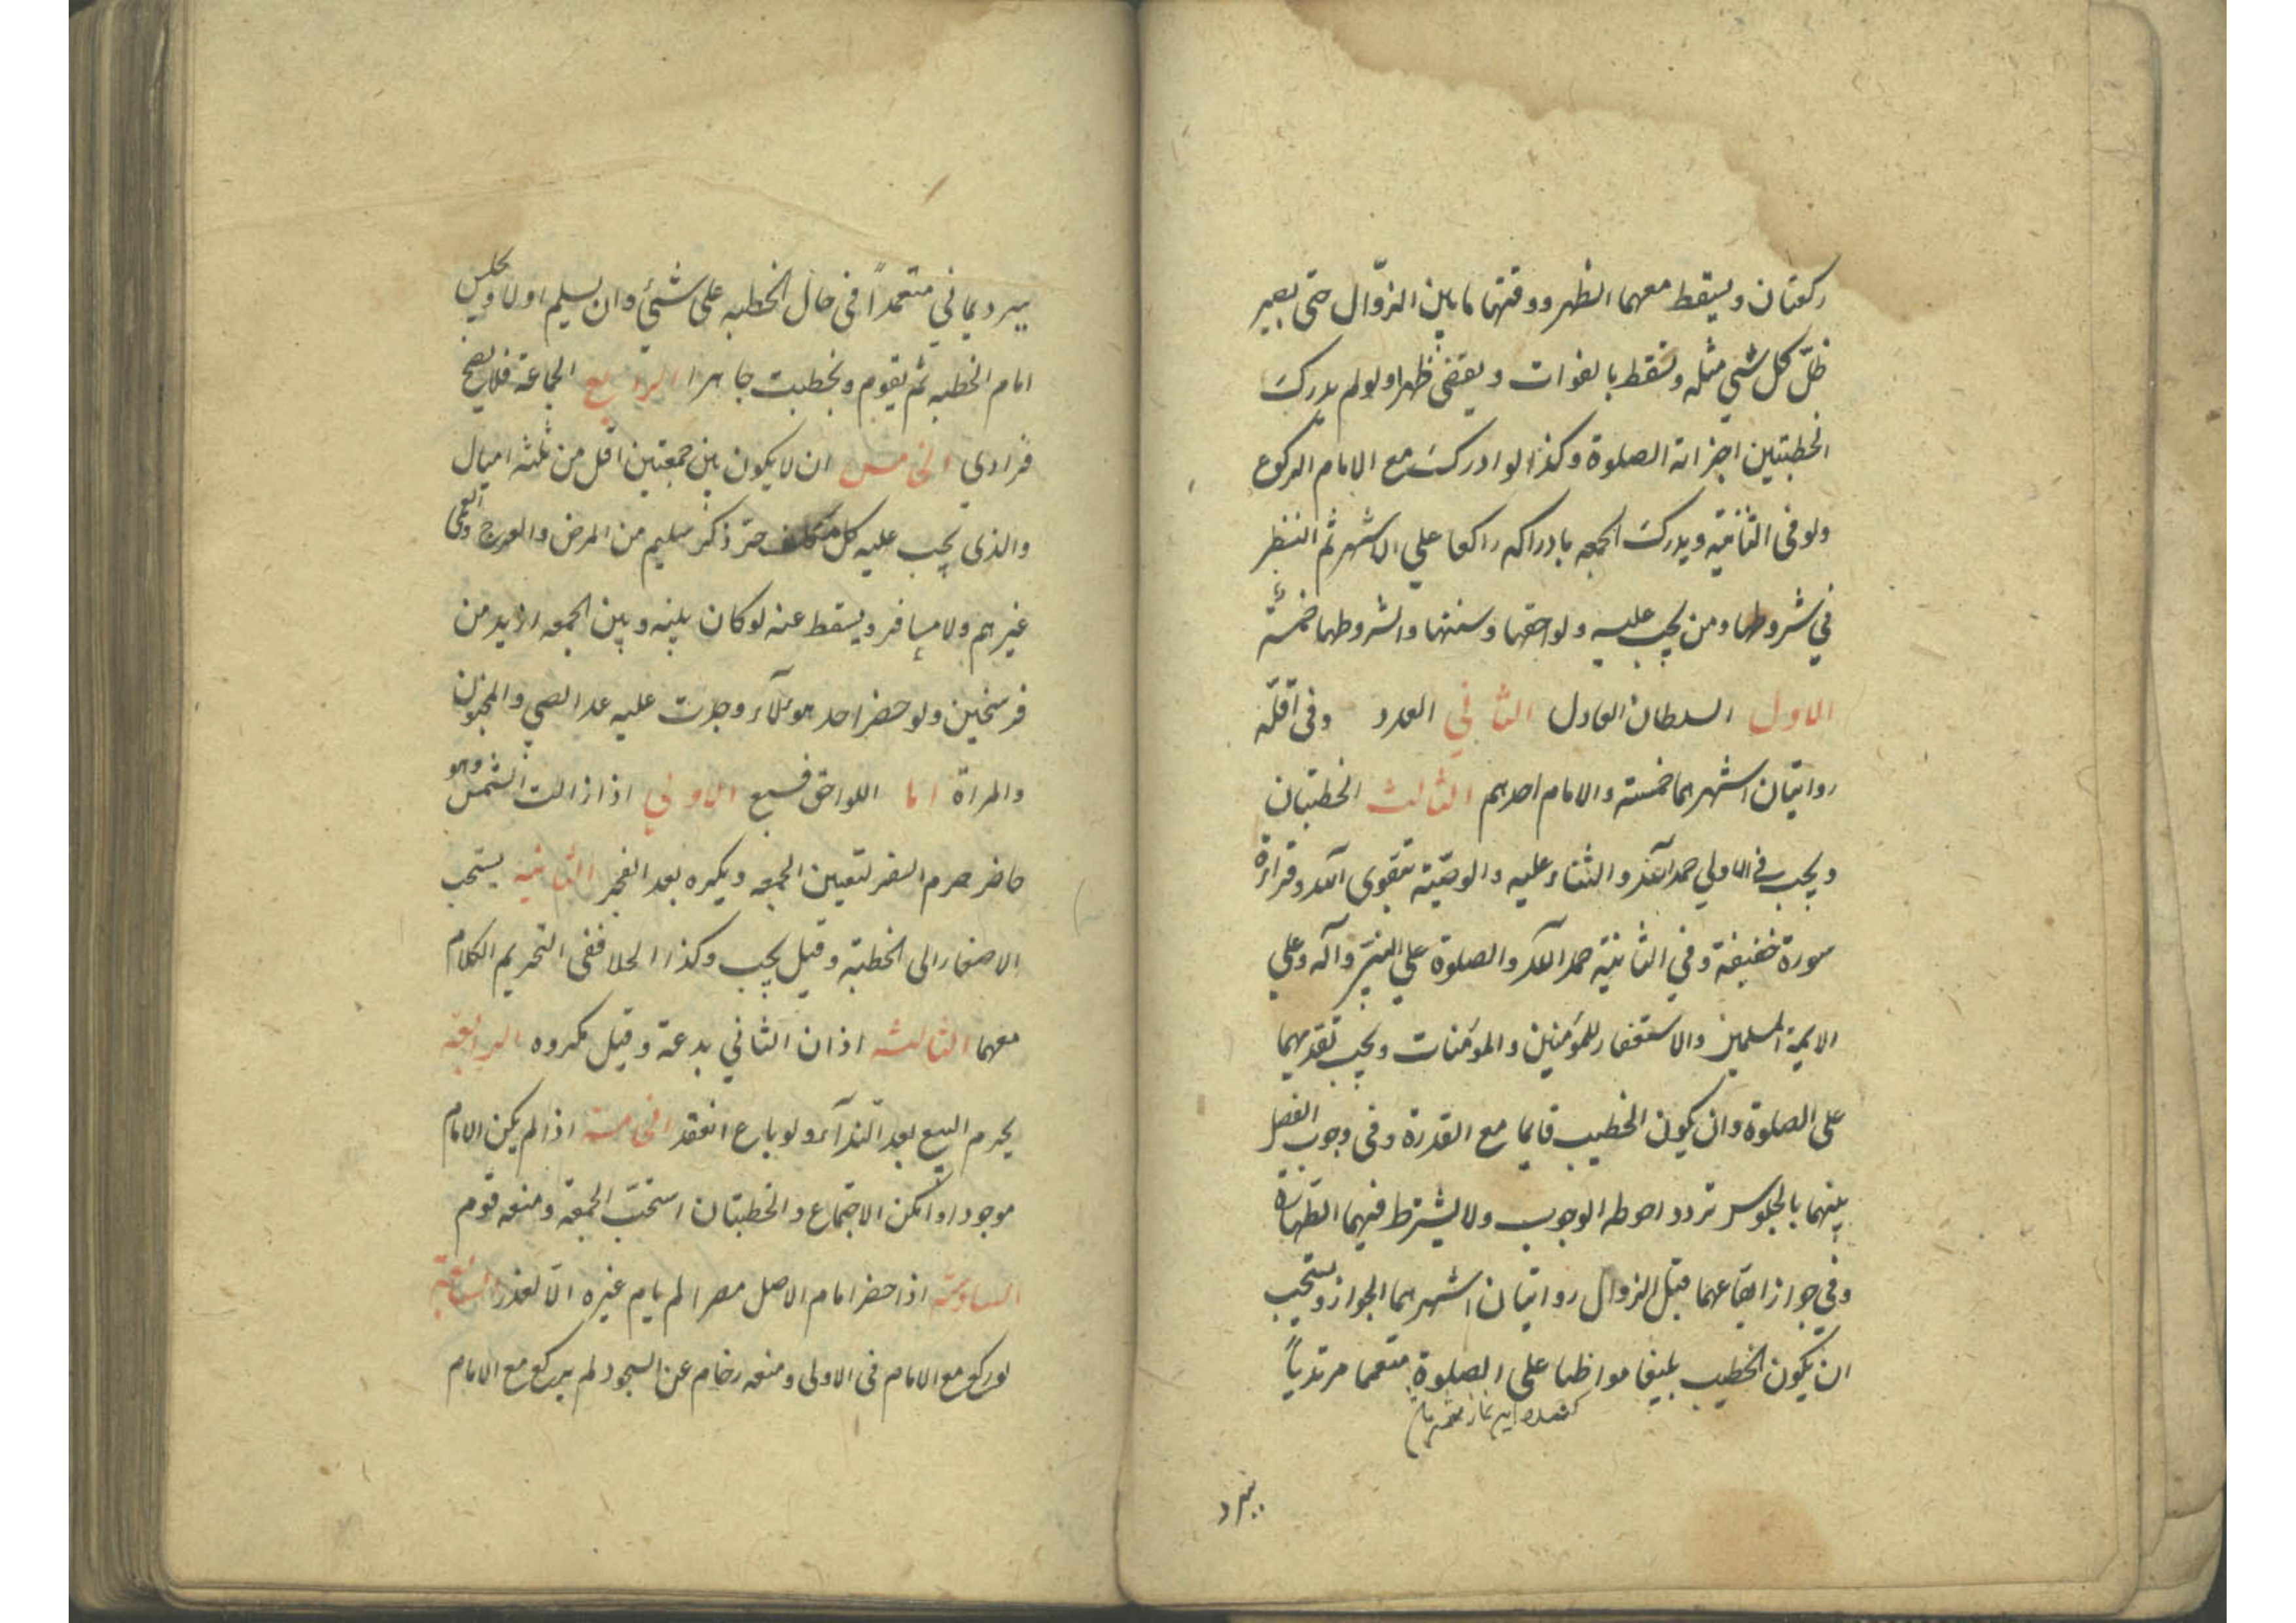 ركعتان ويسقط معهما الظهر ووقتها ما بين الزوال حتى يصير
ظلّ كل شيئ مثله وتسقط بالفوات ويقضى ظهرا ولو لم يدرك
الخطبتين اجزاته الصلوة وكذا لو ادرك مع الامام الركوع
ولو فى الثانية ويدرك الجمعه بادراكه راكعا علي الاشهر ثم النظر
في شروطها ومن يجب عليه ولواحقها وسننها والشروطها خمسة
الاول السلطان العادل الثاني العدد وفى اقلّه
روايتان اشهرهما خمسة والامام احدهم الثالث الخطبتان
ويجب في الاولي حمد الله والثناء عليه والوصيّة بتقوى الله وقراءة
سورة خفيفة وفي الثانية حمد الله والصلوة علي النبيّ وآله وعلي
الايمة المسلمين والاستغفار للمؤمنين والمومنات ويجب تقديمهما
على الصلوة وان يكون الخطيب قايما مع القدرة وفى وجوب الفصل
بينهما بالجلوس تردد احوطه الوجوب ولا يشترط فيهما الطهارة
وفي جواز ايقاعهما قبل الزوال روايتان اشهرهما الجواز ويستحب
ان يكون الخطيب بليغا مواظبا على الصلوة متعمما مرتدياً
ببرد
ببرد يماني متعمداً فى حال الخطبه على شيئ وان يسلم اولا ويجلس
امام الخطبه ثم يقوم ويخطب جاهرا الرابع الجماعة فلا يصح
فرادي الخامس ان لا يكون بين جمعتين اقل من ثلثه اميال
والذى يجب عليه كل مكلف حر ذكر سليم من المرض والعرج والعمى
غيرهم ولا مسافر ويسقط عنه لو كان بينه وبين الجمعه ازيد من
فرسخين ولو حضر احد هولآء وجبت عليه عدا الصبي والمجنون
والمراة اما اللواحق فسبع الاولي اذا زالت الشمس وهو
حاضر حرم السفر لتعين الجمعه ويكره بعد الفجر الثانية يستحب
الاصغا الى الخطبة وقيل يجب وكذا الخلاف فى التحريم الكلام
معهما الثالثه اذان الثاني بدعة وقيل مكروه الرابعة
يحرم البيع بعد النّدآء ولو باع انعقد الخامسة اذا لم يكن الامام
موجودا وامكن الاجتماع والخطبتان استحبّ الجمعة ومنعه قوم
السادسة اذا حضر امام الاصل مصرا لم يام غيره الّا لعذر السابعة
لو ركع مع الامام فى الاولى ومنعه زحام عن السجود لم يركع مع الامام